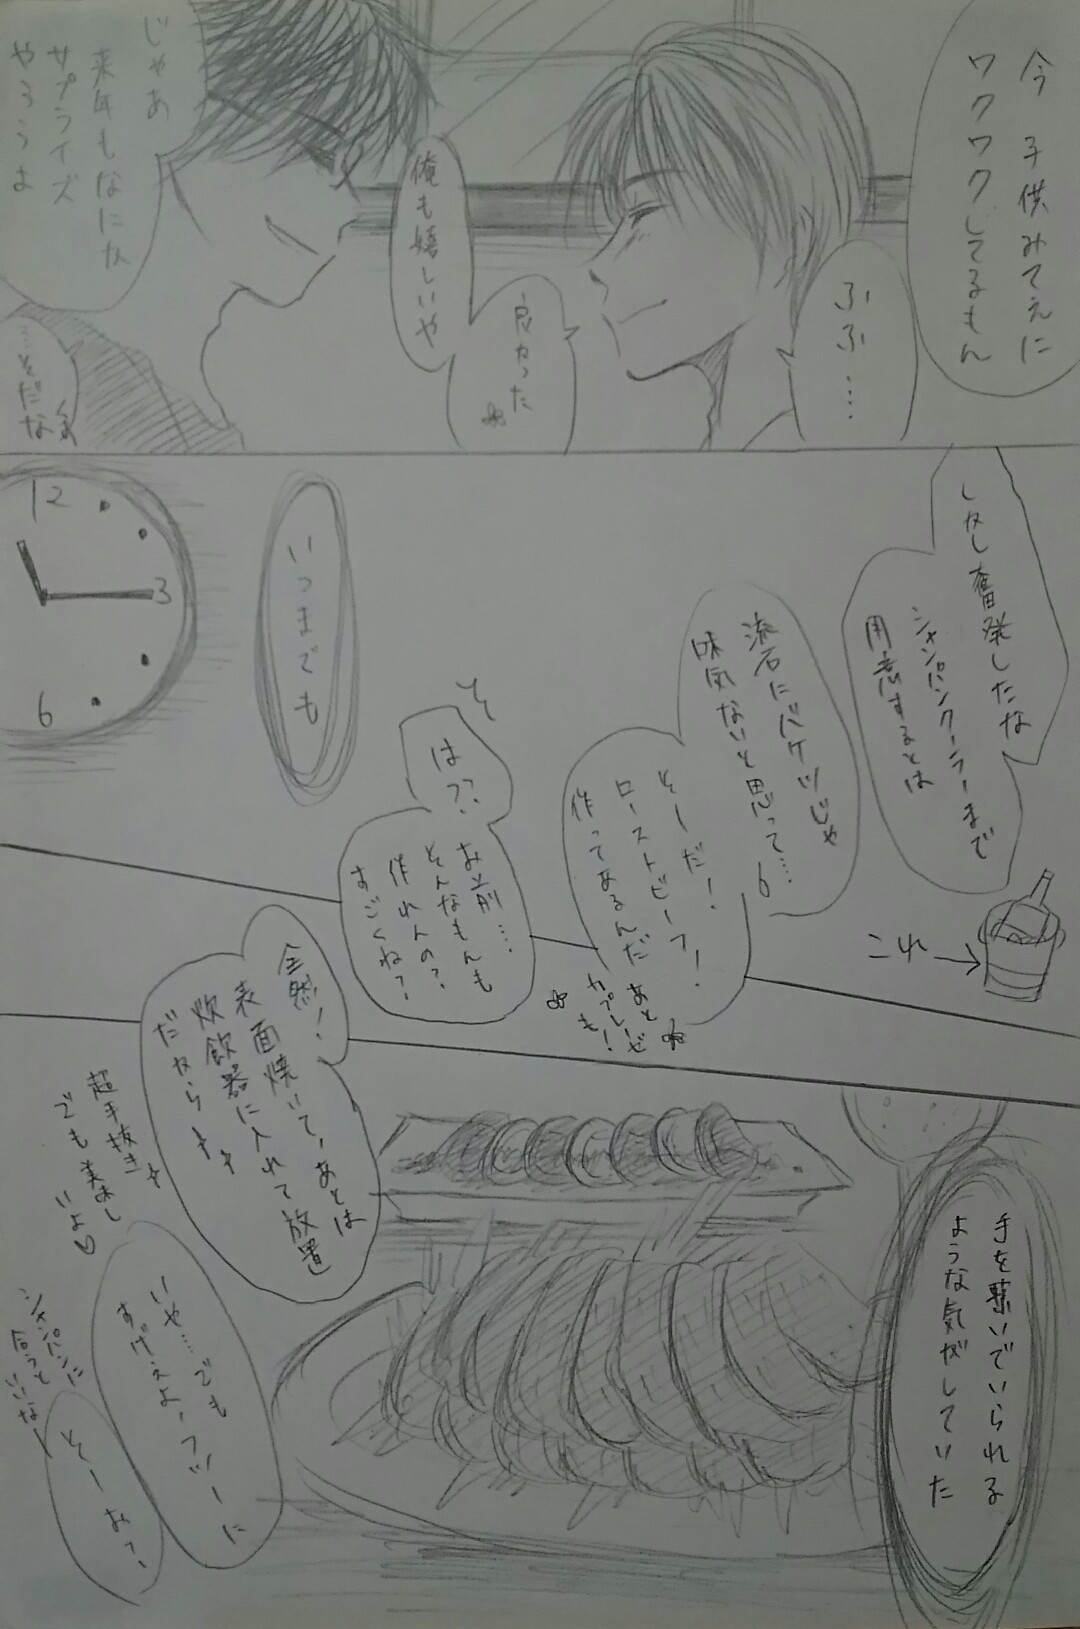 今 子供みてえに
ワクワクしてるもん
ふふ…
良かった
俺も嬉しいや
じゃあ
来年もなにか
サプライズ
やろうよ
…そだな
しかし奮発したな
シャンパンクーラーまで
用意するとは
これ
流石にバケツじゃ
味気ないと思って…
そーだ!
ローストビーフ!
作ってあるんだ
あと
カプレーゼ
も!
は??
お前…
そんなもんも
作れんの?
すごくね?
いつまでも
12
3
6
全然!
表面焼いて、あとは
炊飯器に入れて放置
だから
超手抜き
でも美味し
いよ♡
いや…でも
すげぇよ、フツーに
そーお?
シャンパンに
合うと
いいな
手を繋いでいられる
ような気がしていた